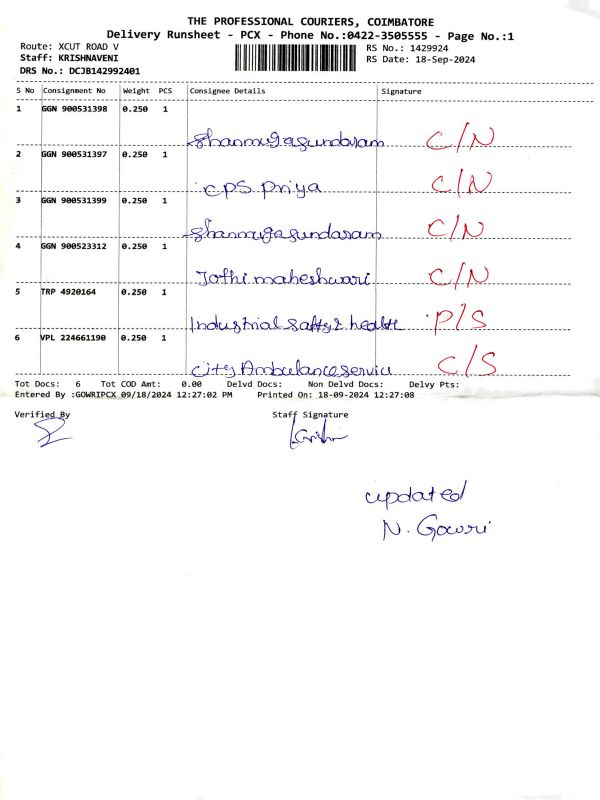 THE PROFESSIONAL COURIERS, COIMBATORE
Delivery Runsheet - PCX - Phone No.:0422-3505555 - Page No.:1
Route: XCUT ROAD V RS No.: 1429924
Staff: KRISHNAVENI RS Date: 18-Sep-2024
DRS No.: DCJB142992401
S No Consignment No Weight PCS Consignee Details Signature
1 GGN 900531398 0.250 1
Shanmugasundaram C/N
2 GGN 900531397 0.250 1
CPS Priya C/N
3 GGN 900531399 0.250 1
Shanmugasundaram C/N
4 GGN 900523312 0.250 1
Jothi maheshwari C/N
5 TRP 4920164 0.250 1
Industrial Safty & health P/S
6 VPL 224661190 0.250 1
City Ambulance servic C/S
Tot Docs: 6 Tot COD Amt: 0.00 Delvd Docs: Non Delvd Docs: Delvy Pts:
Entered By :GOWRIPCX 09/18/2024 12:27:02 PM Printed On: 18-09-2024 12:27:08
Verified By Staff Signature
updated
N. Gowri